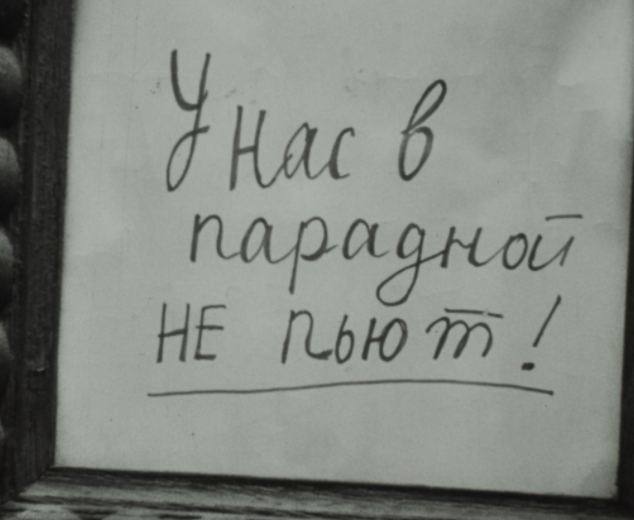 У нас в
парадной
НЕ пьют!